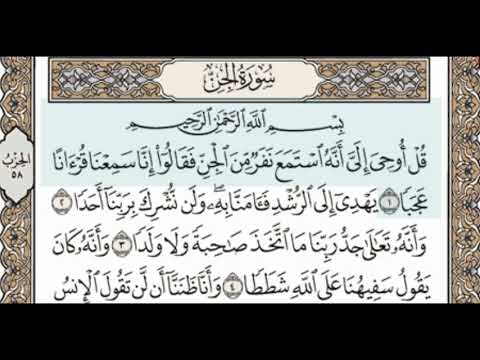 سُورَةُ الجِنِّ
بِسْمِ ٱللَّهِ ٱلرَّحْمَٰنِ ٱلرَّحِيمِ
قُلْ أُوحِىَ إِلَىَّ أَنَّهُ ٱسْتَمَعَ نَفَرٌ مِّنَ ٱلْجِنِّ فَقَالُوٓا۟ إِنَّا سَمِعْنَا قُرْءَانًا
عَجَبًا ١ يَهْدِىٓ إِلَى ٱلرُّشْدِ فَـَٔامَنَّا بِهِۦ ۖ وَلَن نُّشْرِكَ بِرَبِّنَآ أَحَدًا ٢
وَأَنَّهُۥ تَعَٰلَىٰ جَدُّ رَبِّنَا مَا ٱتَّخَذَ صَٰحِبَةً وَلَا وَلَدًا ٣ وَأَنَّهُۥ كَانَ
يَقُولُ سَفِيهُنَا عَلَى ٱللَّهِ شَطَطًا ٤ وَأَنَّا ظَنَنَّآ أَن لَّن تَقُولَ ٱلْإِنسُ
الحِزْبُ
٥٨